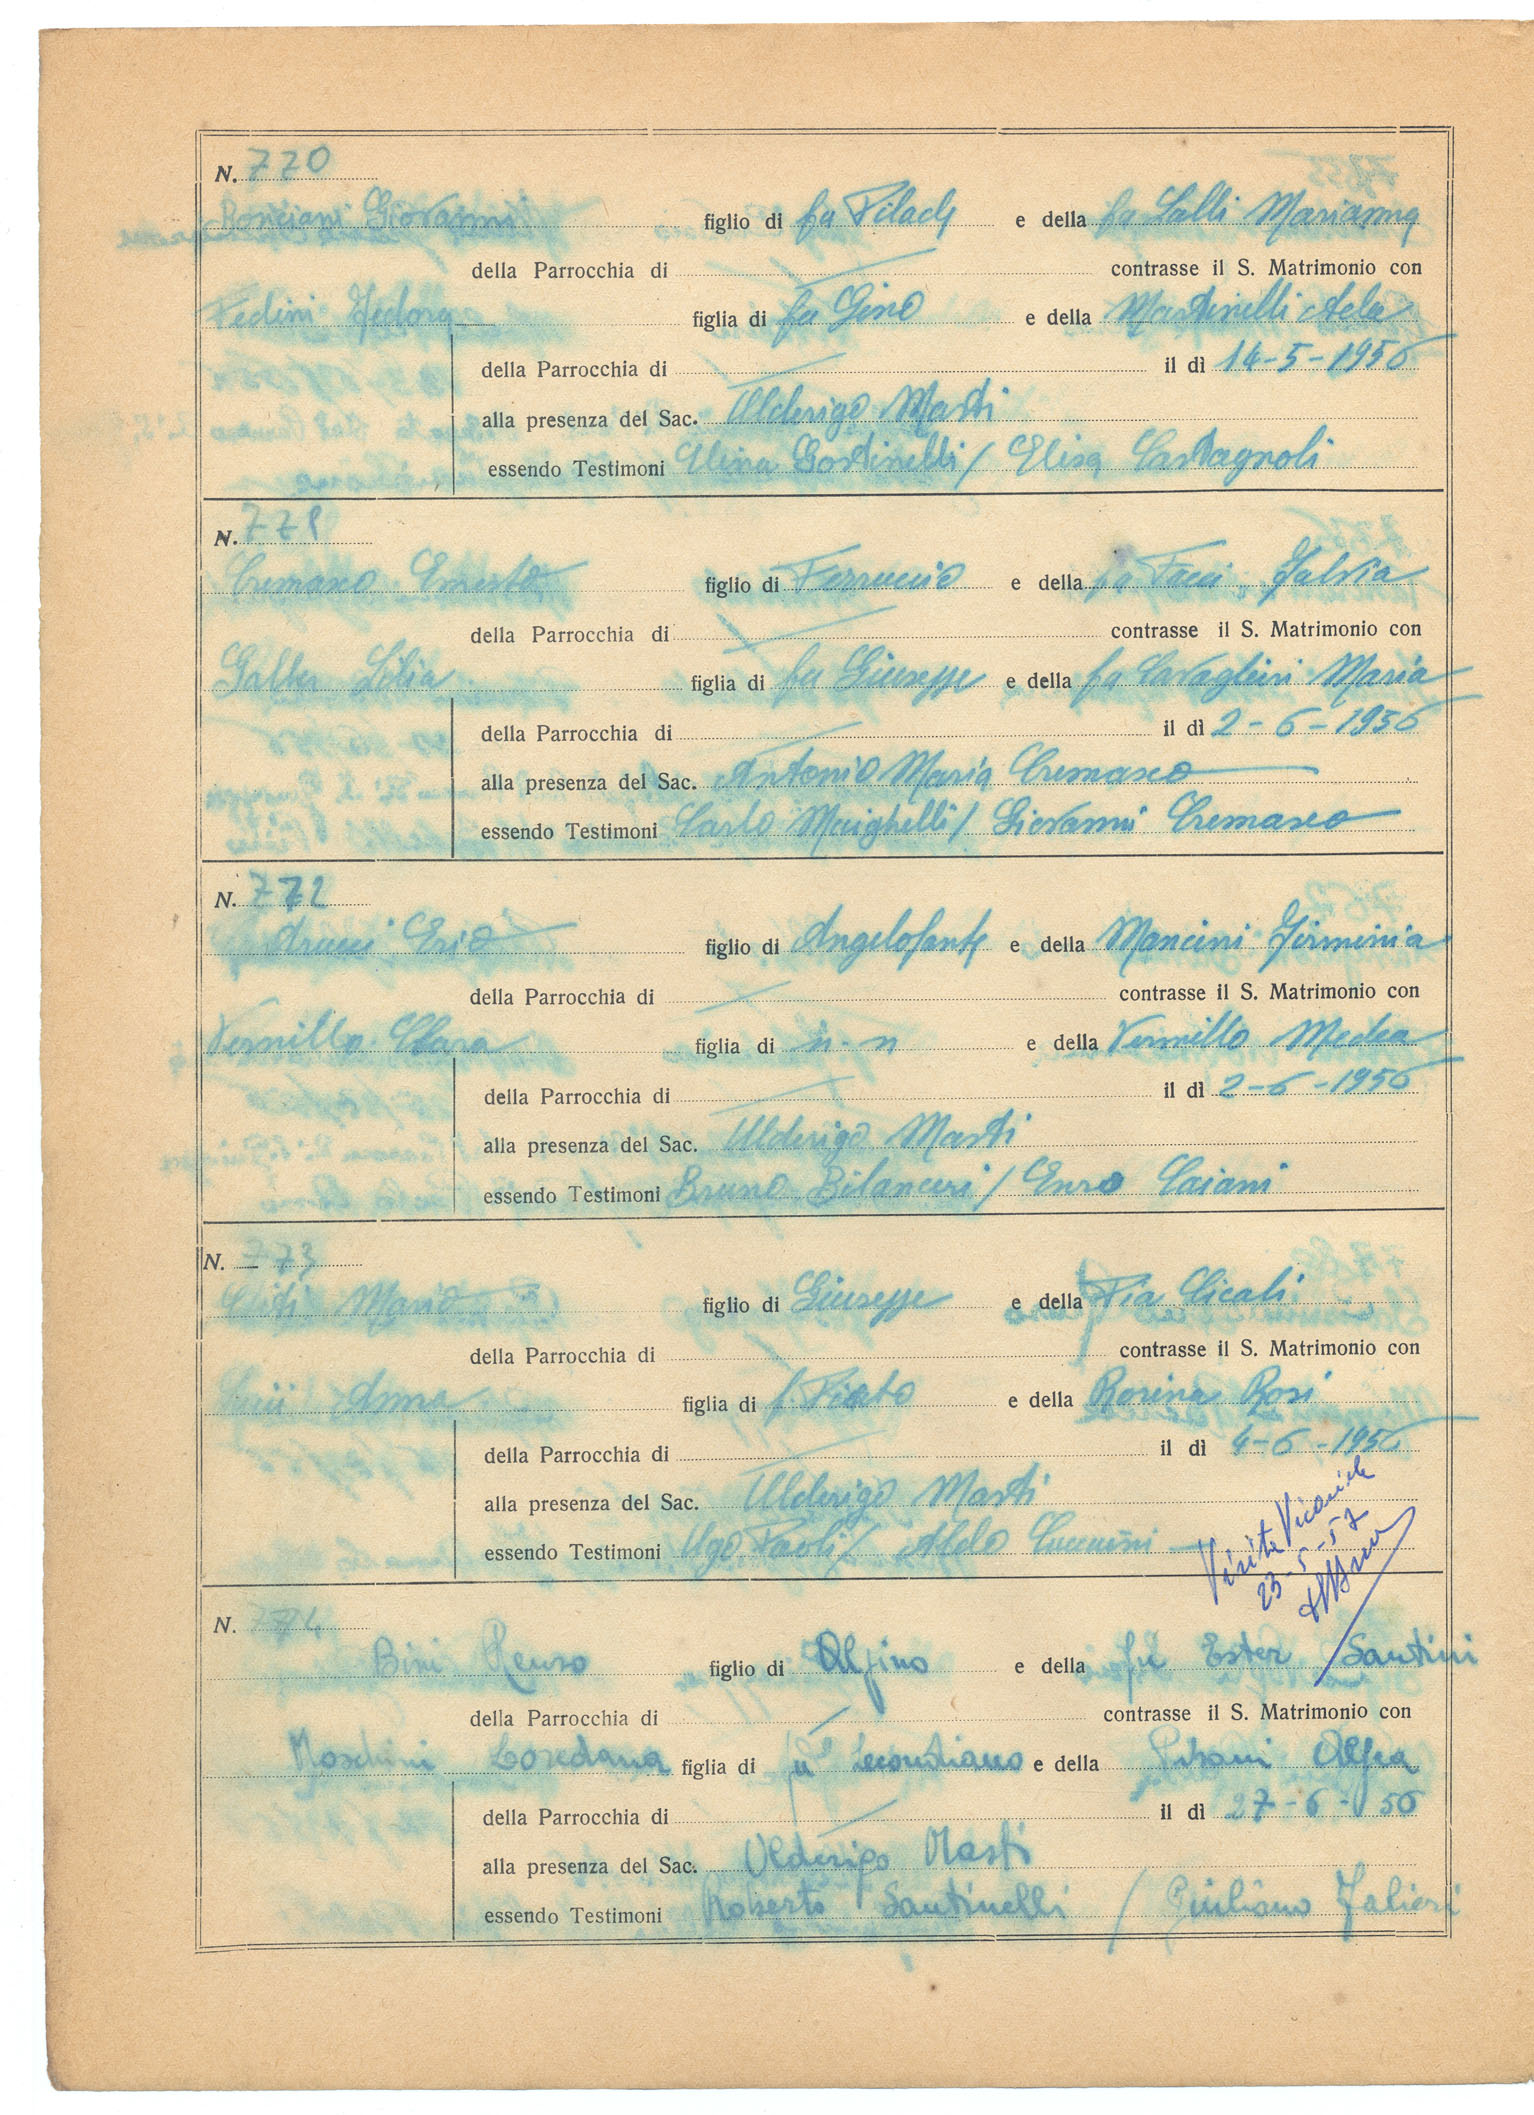 N. 770
Ronciani Giovanni figlio di fu Pilade e della fu Lalli Marianna
della Parrocchia di / contrasse il S. Matrimonio con
Fedini Fedora figlia di fu Gino e della Martinelli Ada
della Parrocchia di / il dì 14-5-1956
alla presenza del Sac. Ulderigo Masti
essendo Testimoni Elina Gostinelli / Elisa Castagnoli
N. 771
Cremasco Ernesto figlio di Ferruccio e della fu Facci Fulvia
della Parrocchia di / contrasse il S. Matrimonio con
Lilia figlia di fu Giuseppe e della fu Cavaglieri Maria
della Parrocchia di / il dì 2-6-1956
alla presenza del Sac. Antonio Maria Cremasco
essendo Testimoni Carlo Maighelli / Giovanni Cremasco
N. 772
figlio di Angelofante e della Mancini Firminia
della Parrocchia di / contrasse il S. Matrimonio con
Vermillo Clara figlia di n-n e della Vermillo Medea
della Parrocchia di / il dì 2-6-1956
alla presenza del Sac. Ulderigo Masti
essendo Testimoni Bruno Bilanceri / Enzo Caiani
N. 773
Chiti Mario figlio di Giuseppe e della Pia Cicali
della Parrocchia di / contrasse il S. Matrimonio con
Anna figlia di f. Pietro e della Rosina Rosi
della Parrocchia di / il dì 4-6-1956
alla presenza del Sac. Ulderigo Masti
essendo Testimoni Ugo Paoli / Aldo Cuccuini
Visita Vicariale
23-5-57
N. 774
Bini Renzo figlio di Alfino e della fu Ester Santini
della Parrocchia di / contrasse il S. Matrimonio con
Moschini Loredana figlia di fu Secondiano e della Pisani Alfea
della Parrocchia di / il dì 27-6-56
alla presenza del Sac. Ulderigo Masti
essendo Testimoni Roberto Santinelli / Giuliano Falieri